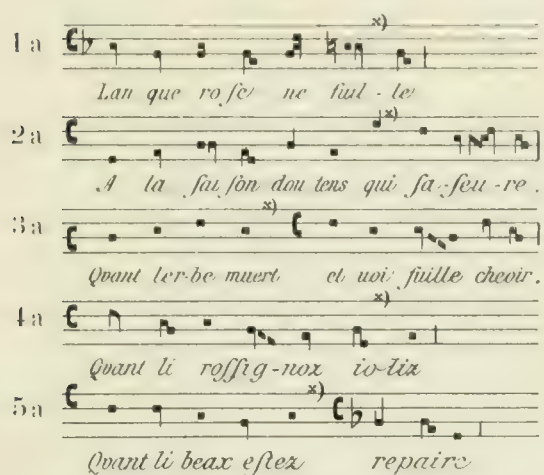 1a x)
Lan que roſe ne fuil - le
2a x)
A la ſaiſon dou tens qui ſa-ſeu-re.
3a x)
Qvant ler-be muert et uoi fuille cheoir.
4a x)
Qvant li roſſig-noz io-liz
5a x)
Qvant li beax eſtez repaire